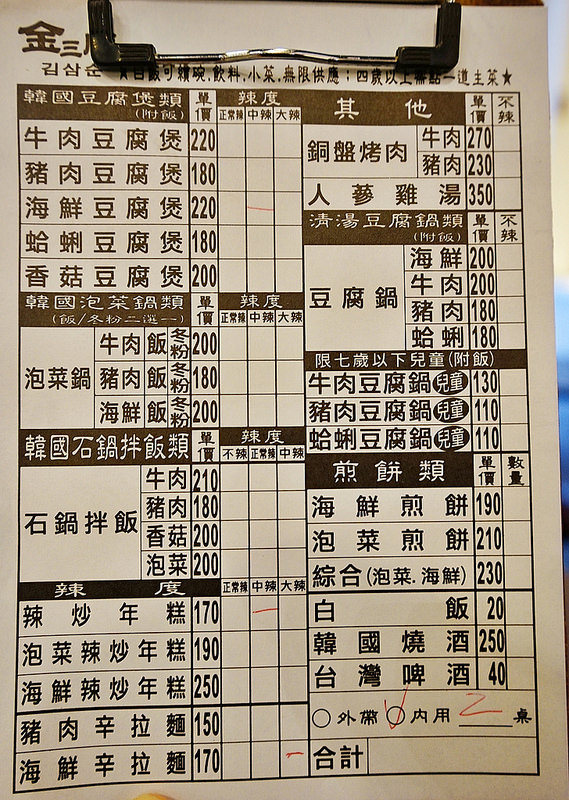 金三
김삼순 ★白飯可續碗.飲料.小菜.無限供應；四歲以上 一道主菜★
韓國豆腐煲類(附飯) 單價 辣度 正常辣 中辣 大辣
牛肉豆腐煲 220
豬肉豆腐煲 180
海鮮豆腐煲 220
蛤蜊豆腐煲 180
香菇豆腐煲 200
韓國泡菜鍋類(飯/冬粉二選一) 單價 辣度 正常辣 中辣 大辣
泡菜鍋
牛肉 飯 冬粉 200
豬肉 飯 冬粉 180
海鮮 飯 冬粉 200
韓國石鍋拌飯類 單價 辣度 不辣 正常辣 中辣
石鍋拌飯
牛肉 210
豬肉 180
香菇 200
泡菜 200
辣度 正常辣 中辣 大辣
辣炒年糕 170
泡菜辣炒年糕 190
海鮮辣炒年糕 250
豬肉辛拉麵 150
海鮮辛拉麵 170
其他 單價 不辣
銅盤烤肉
牛肉 270
豬肉 230
人蔘雞湯 350
清湯豆腐鍋類(附飯) 單價 不辣
豆腐鍋
海鮮 200
牛肉 200
豬肉 180
蛤蜊 180
限七歲以下兒童(附飯)
牛肉豆腐鍋 兒童 130
豬肉豆腐鍋 兒童 110
蛤蜊豆腐鍋 兒童 110
煎餅類 單價 數量
海鮮煎餅 190
泡菜煎餅 210
綜合(泡菜.海鮮) 230
白飯 20
韓國燒酒 250
台灣啤酒 40
○外帶 ○內用 2 桌
合計